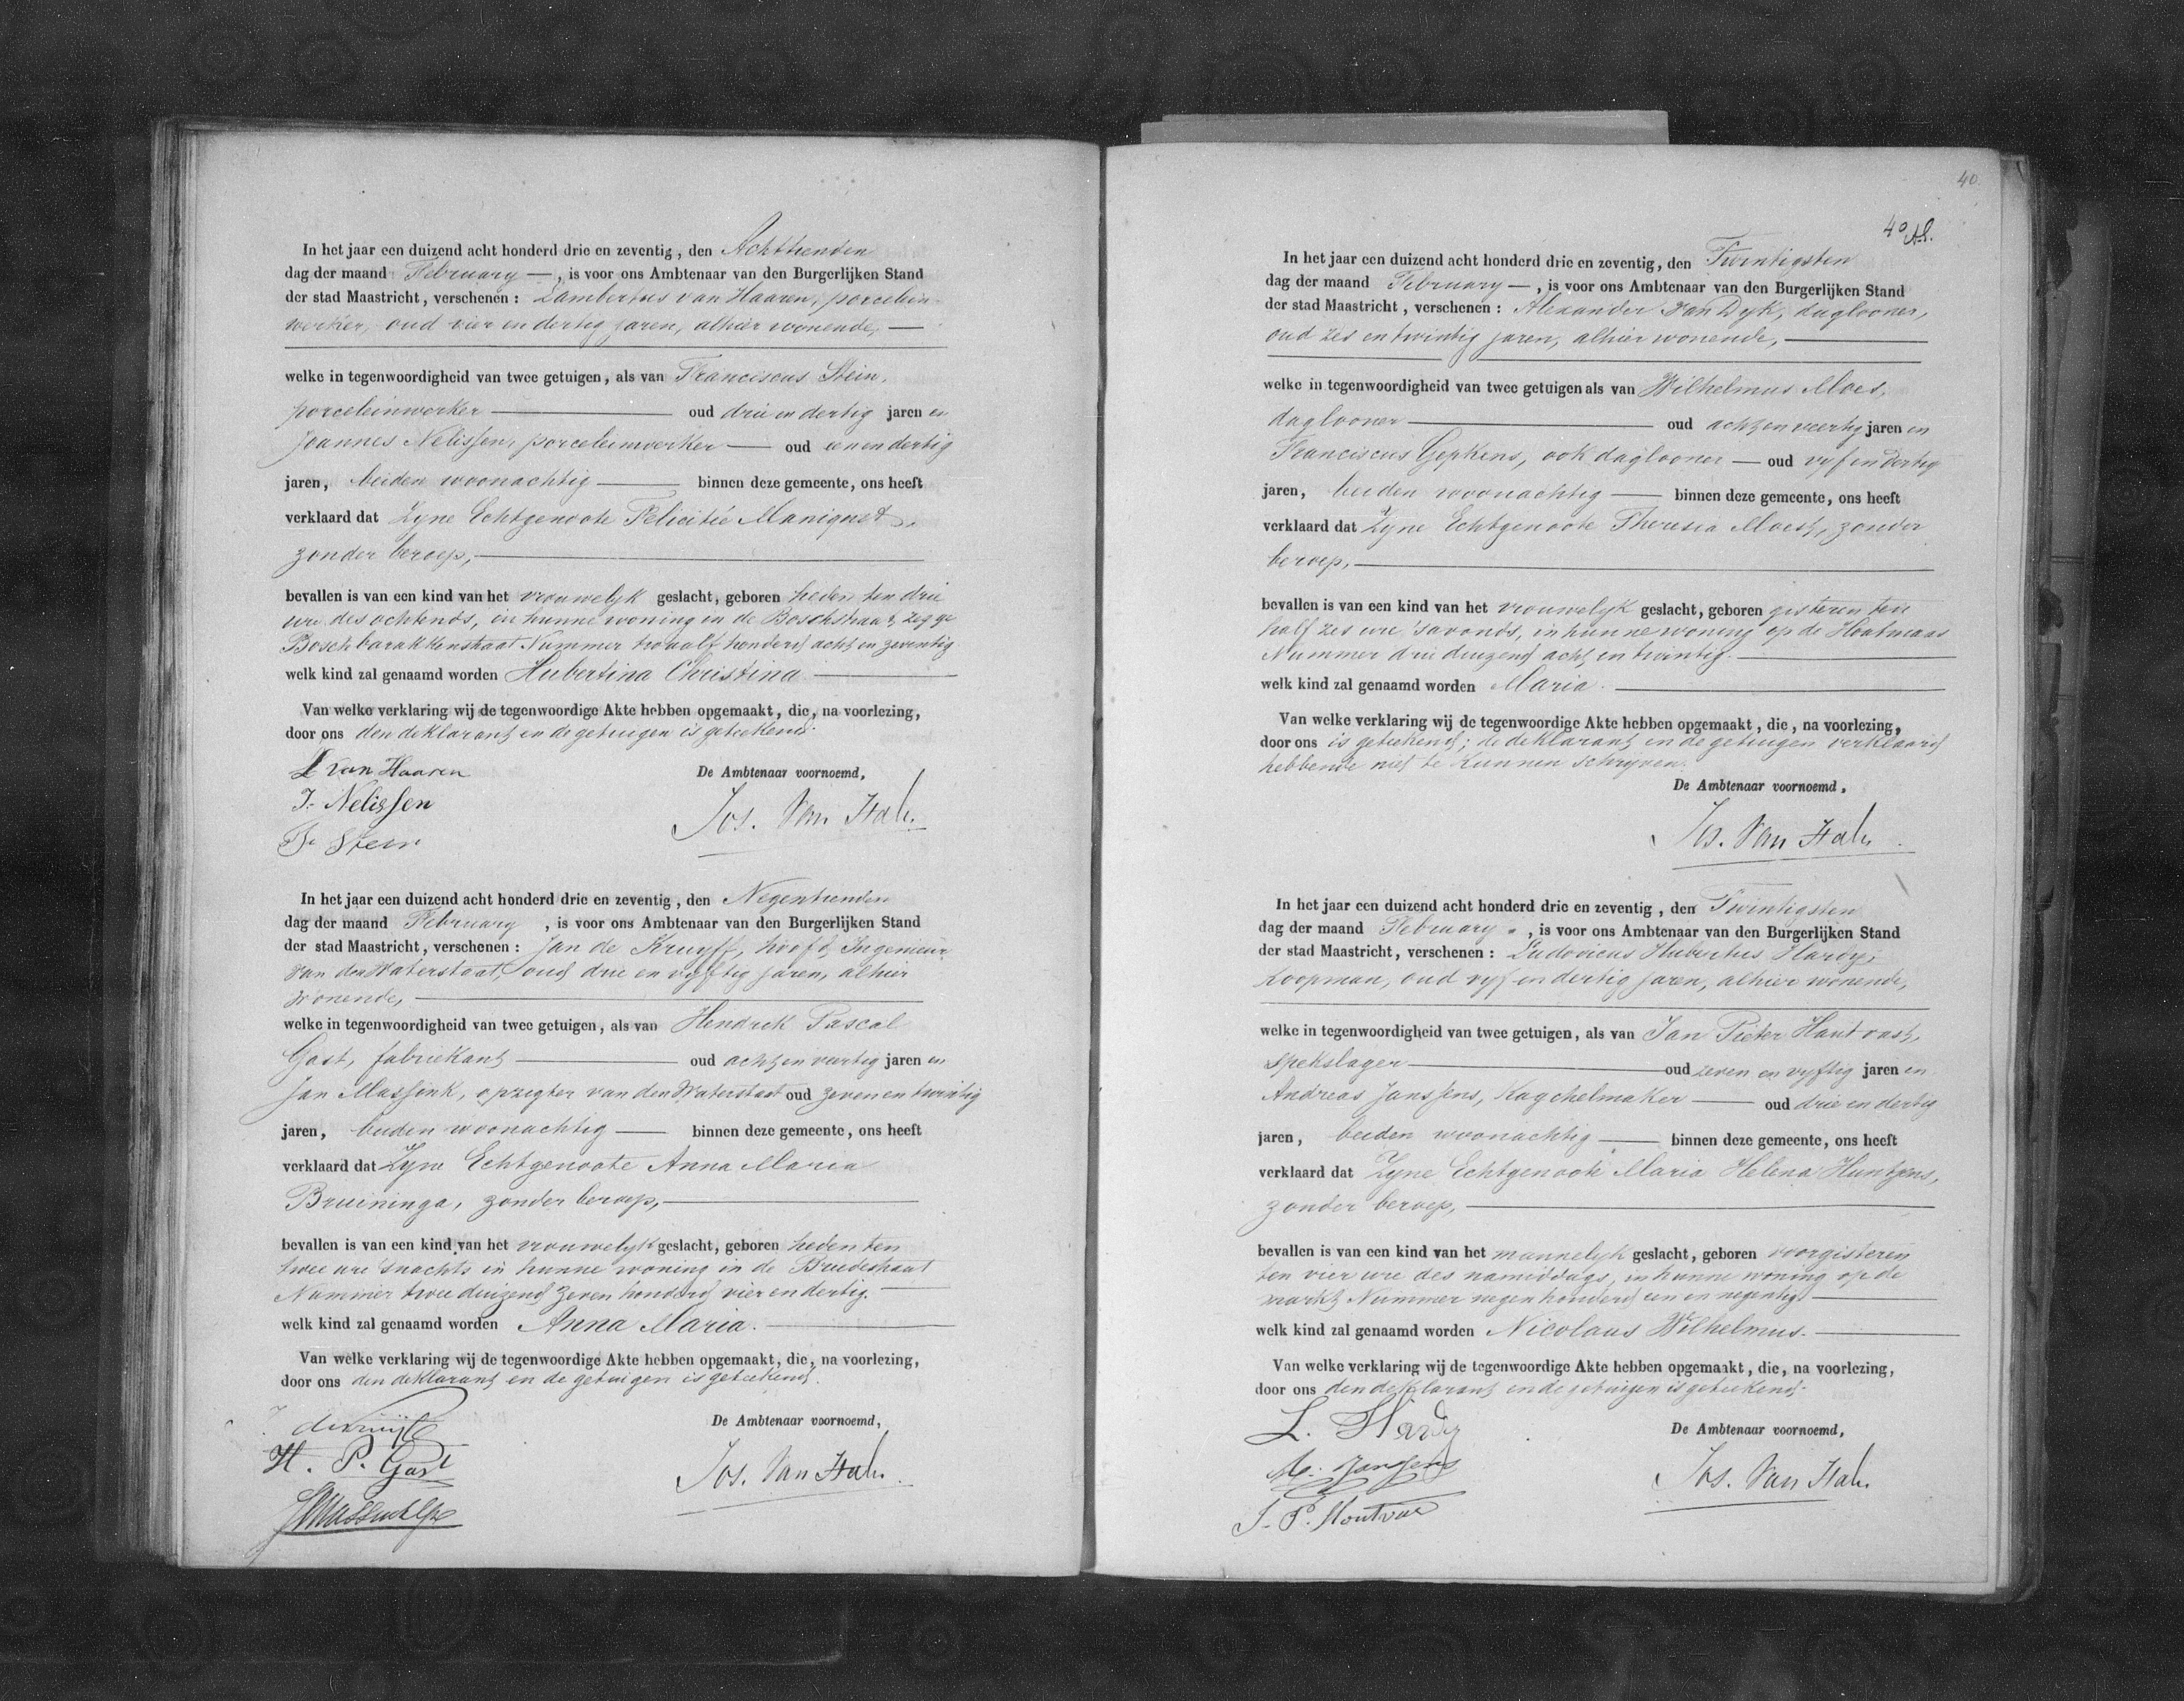 In het jaar een duizend acht honderd drie en zeventig, den Achttienden
dag der maand February —, is voor ons Ambtenaar van den Burgerlijken Stand
der stad Maastricht, verschenen: Lambertus van Haaren, porcelein-
werker, oud vier en dertig jaren, alhier wonende, —
welke in tegenwoordigheid van twee getuigen, als van Franciscus Stein,
porceleinwerker — oud drie en dertig jaren en
Joannes Nelissen, porceleinwerker — oud een en dertig
jaren, beiden woonachtig — binnen deze gemeente, ons heeft
verklaard dat Zyne Echtgenoote Felicitée Maniquet,
zonder beroep, —
bevallen is van een kind van het vrouwelyk geslacht, geboren heden ten drie
ure des ochtends, in hunne woning in de Boschstraat, zegge
Boschbarakkenstraat Nummer twaalf honderd acht en zeventig
welk kind zal genaamd worden Hubertina Christina. —
Van welke verklaring wij de tegenwoordige Akte hebben opgemaakt, die, na voorlezing,
door ons den deklarant en de getuigen is geteekend.
L van Haaren
De Ambtenaar voornoemd,
J. Nelissen
Jos. Van Hal.
F. Stein
In het jaar een duizend acht honderd drie en zeventig, den Negentienden
dag der maand February, is voor ons Ambtenaar van den Burgerlijken Stand
der stad Maastricht, verschenen: Jan de Kruyff, hoofd Ingenieur
van den Waterstaat, oud drie en vyftig jaren, alhier
wonende, —
welke in tegenwoordigheid van twee getuigen, als van Hendrik Pascal
Gast, fabriekant — oud acht en veertig jaren en
Jan Massink, opzigter van den Waterstaat oud zeven en twintig
jaren, beiden woonachtig — binnen deze gemeente, ons heeft
verklaard dat Zyne Echtgenoote Anna Maria
Bruininga, zonder beroep, —
bevallen is van een kind van het vrouwelyk geslacht, geboren heden ten
twee ure 'snachts in hunne woning in de Breedestraat
Nummer twee duizend zeven honderd vier en dertig. —
welk kind zal genaamd worden Anna Maria. —
Van welke verklaring wij de tegenwoordige Akte hebben opgemaakt, die, na voorlezing,
door ons den deklarant en de getuigen is geteekend.
De Ambtenaar voornoemd,
H. P. Gast
Jos. Van Hal.
40
40
In het jaar een duizend acht honderd drie en zeventig, den Twintigsten
dag der maand February —, is voor ons Ambtenaar van den Burgerlijken Stand
der stad Maastricht, verschenen: Alexander Van Dyk, daglooner,
oud zes en twintig jaren, alhier wonende, —
welke in tegenwoordigheid van twee getuigen als van Wilhelmus Moes,
daglooner — oud acht en veertig jaren en
Franciscus Gepkens, ook daglooner — oud vyf en dertig
jaren, beiden woonachtig — binnen deze gemeente, ons heeft
verklaard dat Zyne Echtgenoote Theresia Moest, zonder
beroep, —
bevallen is van een kind van het vrouwelyk geslacht, geboren gisteren ten
half zes ure 'savonds, in hunne woning op de Houtmaas
Nummer drie duizend acht en twintig. —
welk kind zal genaamd worden Maria. —
Van welke verklaring wij de tegenwoordige Akte hebben opgemaakt, die, na voorlezing,
door ons is geteekend; de deklarant en de getuigen verklaard
hebbende niet te kunnen schryven.
De Ambtenaar voornoemd,
Jos. Van Hal.
In het jaar een duizend acht honderd drie en zeventig, den Twintigsten
dag der maand February, is voor ons Ambtenaar van den Burgerlijken Stand
der stad Maastricht, verschenen: Ludovicus Hubertus Hardy,
koopman, oud vyf en dertig jaren, alhier wonende,
welke in tegenwoordigheid van twee getuigen, als van Jan Pieter Houtvast,
spekslager — oud zeven en vyftig jaren en
Andreas Janssens, Kagchelmaker — oud drie en dertig
jaren, beiden woonachtig — binnen deze gemeente, ons heeft
verklaard dat Zyne Echtgenoote Maria Helena Huntjens,
zonder beroep, —
bevallen is van een kind van het mannelyk geslacht, geboren voorgisteren
ten vier ure des namiddags, in hunne woning op de
markt Nummer negen honderd een en negentig. —
welk kind zal genaamd worden Nicolaus Wilhelmus. —
Van welke verklaring wij de tegenwoordige Akte hebben opgemaakt, die, na voorlezing,
door ons den deklarant en de getuigen is geteekend.
L. Hardy
De Ambtenaar voornoemd,
A. Janssens
Jos. Van Hal.
J. P. Houtvast